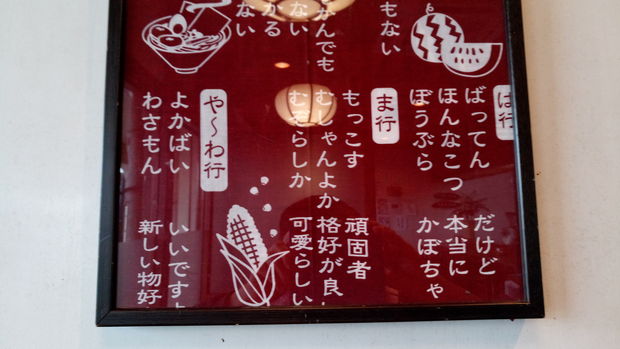 は行
ばってん だけど
ほんなこつ 本当に
ぼうぶら かぼちゃ
ま行
もっこす 頑固者
むしゃんよか 格好が良
むぞらしか 可愛らしい
や〜わ行
よかばい いいですよ
わさもん 新しい物好
もない
なんでも
ない
かる
ない